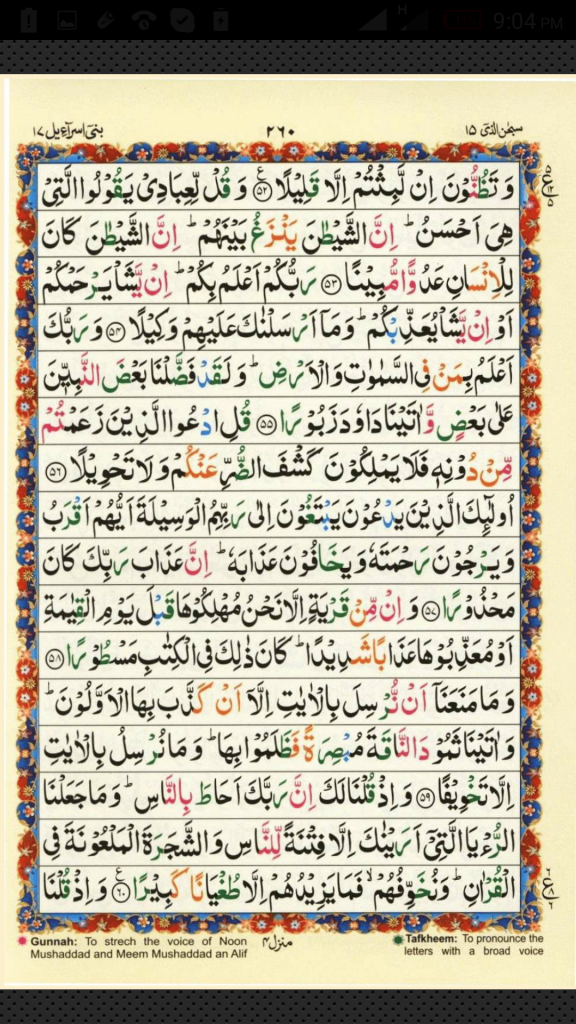 9:04 PM
سبحٰن الذی ١٥
٢٦٠
بنی اسراءیل ١٧
وَ تَظُنُّوْنَ اِنْ لَّبِثْتُمْ اِلَّا قَلِیْلًا ﴿٥٢﴾ وَ قُلْ لِّعِبَادِیْ یَقُوْلُوا الَّتِیْ
هِیَ اَحْسَنُ ؕ اِنَّ الشَّیْطٰنَ یَنْزَغُ بَیْنَهُمْ ؕ اِنَّ الشَّیْطٰنَ كَانَ
لِلْاِنْسَانِ عَدُوًّا مُّبِیْنًا ﴿٥٣﴾ رَبُّكُمْ اَعْلَمُ بِكُمْ ؕ اِنْ یَّشَاْ یَرْحَمْكُمْ
اَوْ اِنْ یَّشَاْ یُعَذِّبْكُمْ ؕ وَ مَاۤ اَرْسَلْنٰكَ عَلَیْهِمْ وَكِیْلًا ﴿٥٤﴾ وَ رَبُّكَ
اَعْلَمُ بِمَنْ فِی السَّمٰوٰتِ وَ الْاَرْضِ ؕ وَ لَقَدْ فَضَّلْنَا بَعْضَ النَّبِیّٖنَ
عَلٰی بَعْضٍ وَّ اٰتَیْنَا دَاوٗدَ زَبُوْرًا ﴿٥٥﴾ قُلِ ادْعُوا الَّذِیْنَ زَعَمْتُمْ
مِّنْ دُوْنِهٖ فَلَا یَمْلِكُوْنَ كَشْفَ الضُّرِّ عَنْكُمْ وَ لَا تَحْوِیْلًا ﴿٥٦﴾
اُولٰٓىِٕكَ الَّذِیْنَ یَدْعُوْنَ یَبْتَغُوْنَ اِلٰی رَبِّهِمُ الْوَسِیْلَةَ اَیُّهُمْ اَقْرَبُ
وَ یَرْجُوْنَ رَحْمَتَهٗ وَ یَخَافُوْنَ عَذَابَهٗ ؕ اِنَّ عَذَابَ رَبِّكَ كَانَ
مَحْذُوْرًا ﴿٥٧﴾ وَ اِنْ مِّنْ قَرْیَةٍ اِلَّا نَحْنُ مُهْلِكُوْهَا قَبْلَ یَوْمِ الْقِیٰمَةِ
اَوْ مُعَذِّبُوْهَا عَذَابًا شَدِیْدًا ؕ كَانَ ذٰلِكَ فِی الْكِتٰبِ مَسْطُوْرًا ﴿٥٨﴾
وَ مَا مَنَعَنَاۤ اَنْ نُّرْسِلَ بِالْاٰیٰتِ اِلَّاۤ اَنْ كَذَّبَ بِهَا الْاَوَّلُوْنَ ؕ
وَ اٰتَیْنَا ثَمُوْدَ النَّاقَةَ مُبْصِرَةً فَظَلَمُوْا بِهَا ؕ وَ مَا نُرْسِلُ بِالْاٰیٰتِ
اِلَّا تَخْوِیْفًا ﴿٥٩﴾ وَ اِذْ قُلْنَا لَكَ اِنَّ رَبَّكَ اَحَاطَ بِالنَّاسِ ؕ وَ مَا جَعَلْنَا
الرُّءْیَا الَّتِیْۤ اَرَیْنٰكَ اِلَّا فِتْنَةً لِّلنَّاسِ وَ الشَّجَرَةَ الْمَلْعُوْنَةَ فِی
الْقُرْاٰنِ ؕ وَ نُخَوِّفُهُمْ ۙ فَمَا یَزِیْدُهُمْ اِلَّا طُغْیَانًا كَبِیْرًا ﴿٦٠﴾ وَ اِذْ قُلْنَا
منزل ٤
Gunnah: To strech the voice of Noon
Mushaddad and Meem Mushaddad an Alif
Tafkheem: To pronounce the
letters with a broad voice